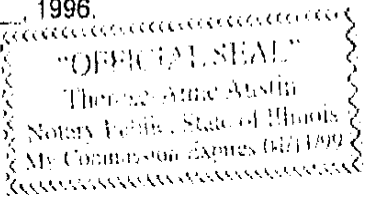 , 1996.
"OFFICIAL SEAL"
Therese Anne Austin
Notary Public, State of Illinois
My Commission Expires 04/11/99